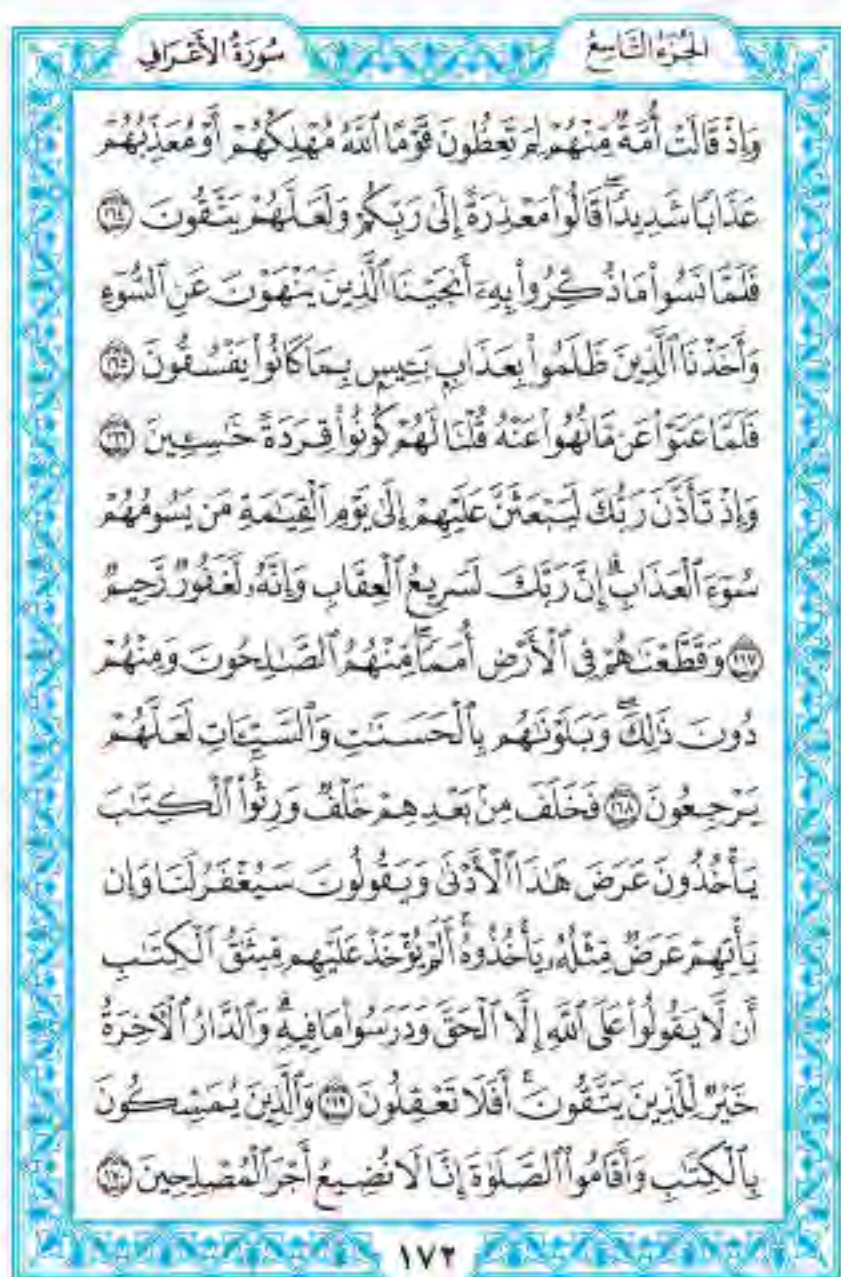 الجُزْءُ التَّاسِعُ
سُورَةُ الأَعْرَافِ
وَإِذْ قَالَتْ أُمَّةٌ مِّنْهُمْ لِمَ تَعِظُونَ قَوْمًا ٱللَّهُ مُهْلِكُهُمْ أَوْ مُعَذِّبُهُمْ
عَذَابًا شَدِيدًاۖ قَالُوا۟ مَعْذِرَةً إِلَىٰ رَبِّكُمْ وَلَعَلَّهُمْ يَتَّقُونَ ١٦٤
فَلَمَّا نَسُوا۟ مَا ذُكِّرُوا۟ بِهِۦٓ أَنجَيْنَا ٱلَّذِينَ يَنْهَوْنَ عَنِ ٱلسُّوٓءِ
وَأَخَذْنَا ٱلَّذِينَ ظَلَمُوا۟ بِعَذَابٍۭ بَـِٔيسٍۭ بِمَا كَانُوا۟ يَفْسُقُونَ ١٦٥
فَلَمَّا عَتَوْا۟ عَن مَّا نُهُوا۟ عَنْهُ قُلْنَا لَهُمْ كُونُوا۟ قِرَدَةً خَـٰسِـِٔينَ ١٦٦
وَإِذْ تَأَذَّنَ رَبُّكَ لَيَبْعَثَنَّ عَلَيْهِمْ إِلَىٰ يَوْمِ ٱلْقِيَـٰمَةِ مَن يَسُومُهُمْ
سُوٓءَ ٱلْعَذَابِۗ إِنَّ رَبَّكَ لَسَرِيعُ ٱلْعِقَابِ وَإِنَّهُۥ لَغَفُورٌ رَّحِيمٌ
١٦٧ وَقَطَّعْنَـٰهُمْ فِى ٱلْأَرْضِ أُمَمًاۖ مِّنْهُمُ ٱلصَّـٰلِحُونَ وَمِنْهُمْ
دُونَ ذَٰلِكَۖ وَبَلَوْنَـٰهُم بِٱلْحَسَنَـٰتِ وَٱلسَّيِّـَٔاتِ لَعَلَّهُمْ
يَرْجِعُونَ ١٦٨ فَخَلَفَ مِنۢ بَعْدِهِمْ خَلْفٌ وَرِثُوا۟ ٱلْكِتَـٰبَ
يَأْخُذُونَ عَرَضَ هَـٰذَا ٱلْأَدْنَىٰ وَيَقُولُونَ سَيُغْفَرُ لَنَا وَإِن
يَأْتِهِمْ عَرَضٌ مِّثْلُهُۥ يَأْخُذُوهُۚ أَلَمْ يُؤْخَذْ عَلَيْهِم مِّيثَـٰقُ ٱلْكِتَـٰبِ
أَن لَّا يَقُولُوا۟ عَلَى ٱللَّهِ إِلَّا ٱلْحَقَّ وَدَرَسُوا۟ مَا فِيهِۗ وَٱلدَّارُ ٱلْـَٔاخِرَةُ
خَيْرٌ لِّلَّذِينَ يَتَّقُونَۗ أَفَلَا تَعْقِلُونَ ١٦٩ وَٱلَّذِينَ يُمَسِّكُونَ
بِٱلْكِتَـٰبِ وَأَقَامُوا۟ ٱلصَّلَوٰةَ إِنَّا لَا نُضِيعُ أَجْرَ ٱلْمُصْلِحِينَ ١٧٠
١٧٢